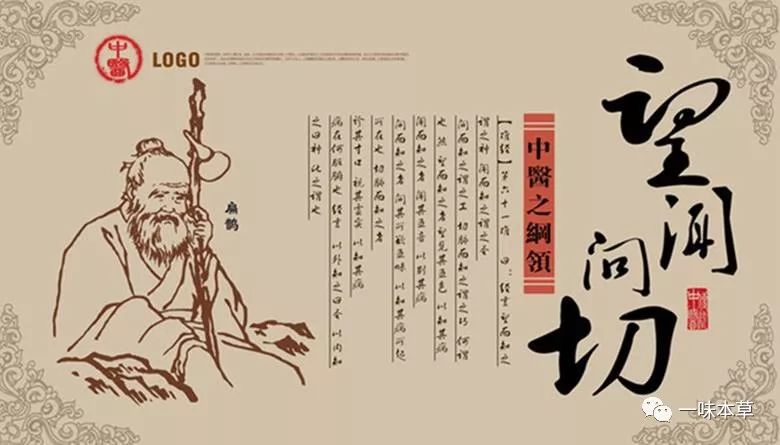 中醫
LOGO
望闻问切
中醫之綱領
【难经】第六十一难 曰：经言 望而知之
谓之神 闻而知之谓之圣
问而知之谓之工 切脉而知之谓之巧 何谓
也 然 望而知之者 望见其五色 以知其病
闻而知之者 闻其五音 以别其病
问而知之者 问其所欲五味 以知其病所起
所在也 切脉而知之者
诊其寸口 视其虚实 以知其病
病在何脏腑也 经言 以外知之曰圣 以内知
之曰神 此之谓也
扁鹊
一味本草